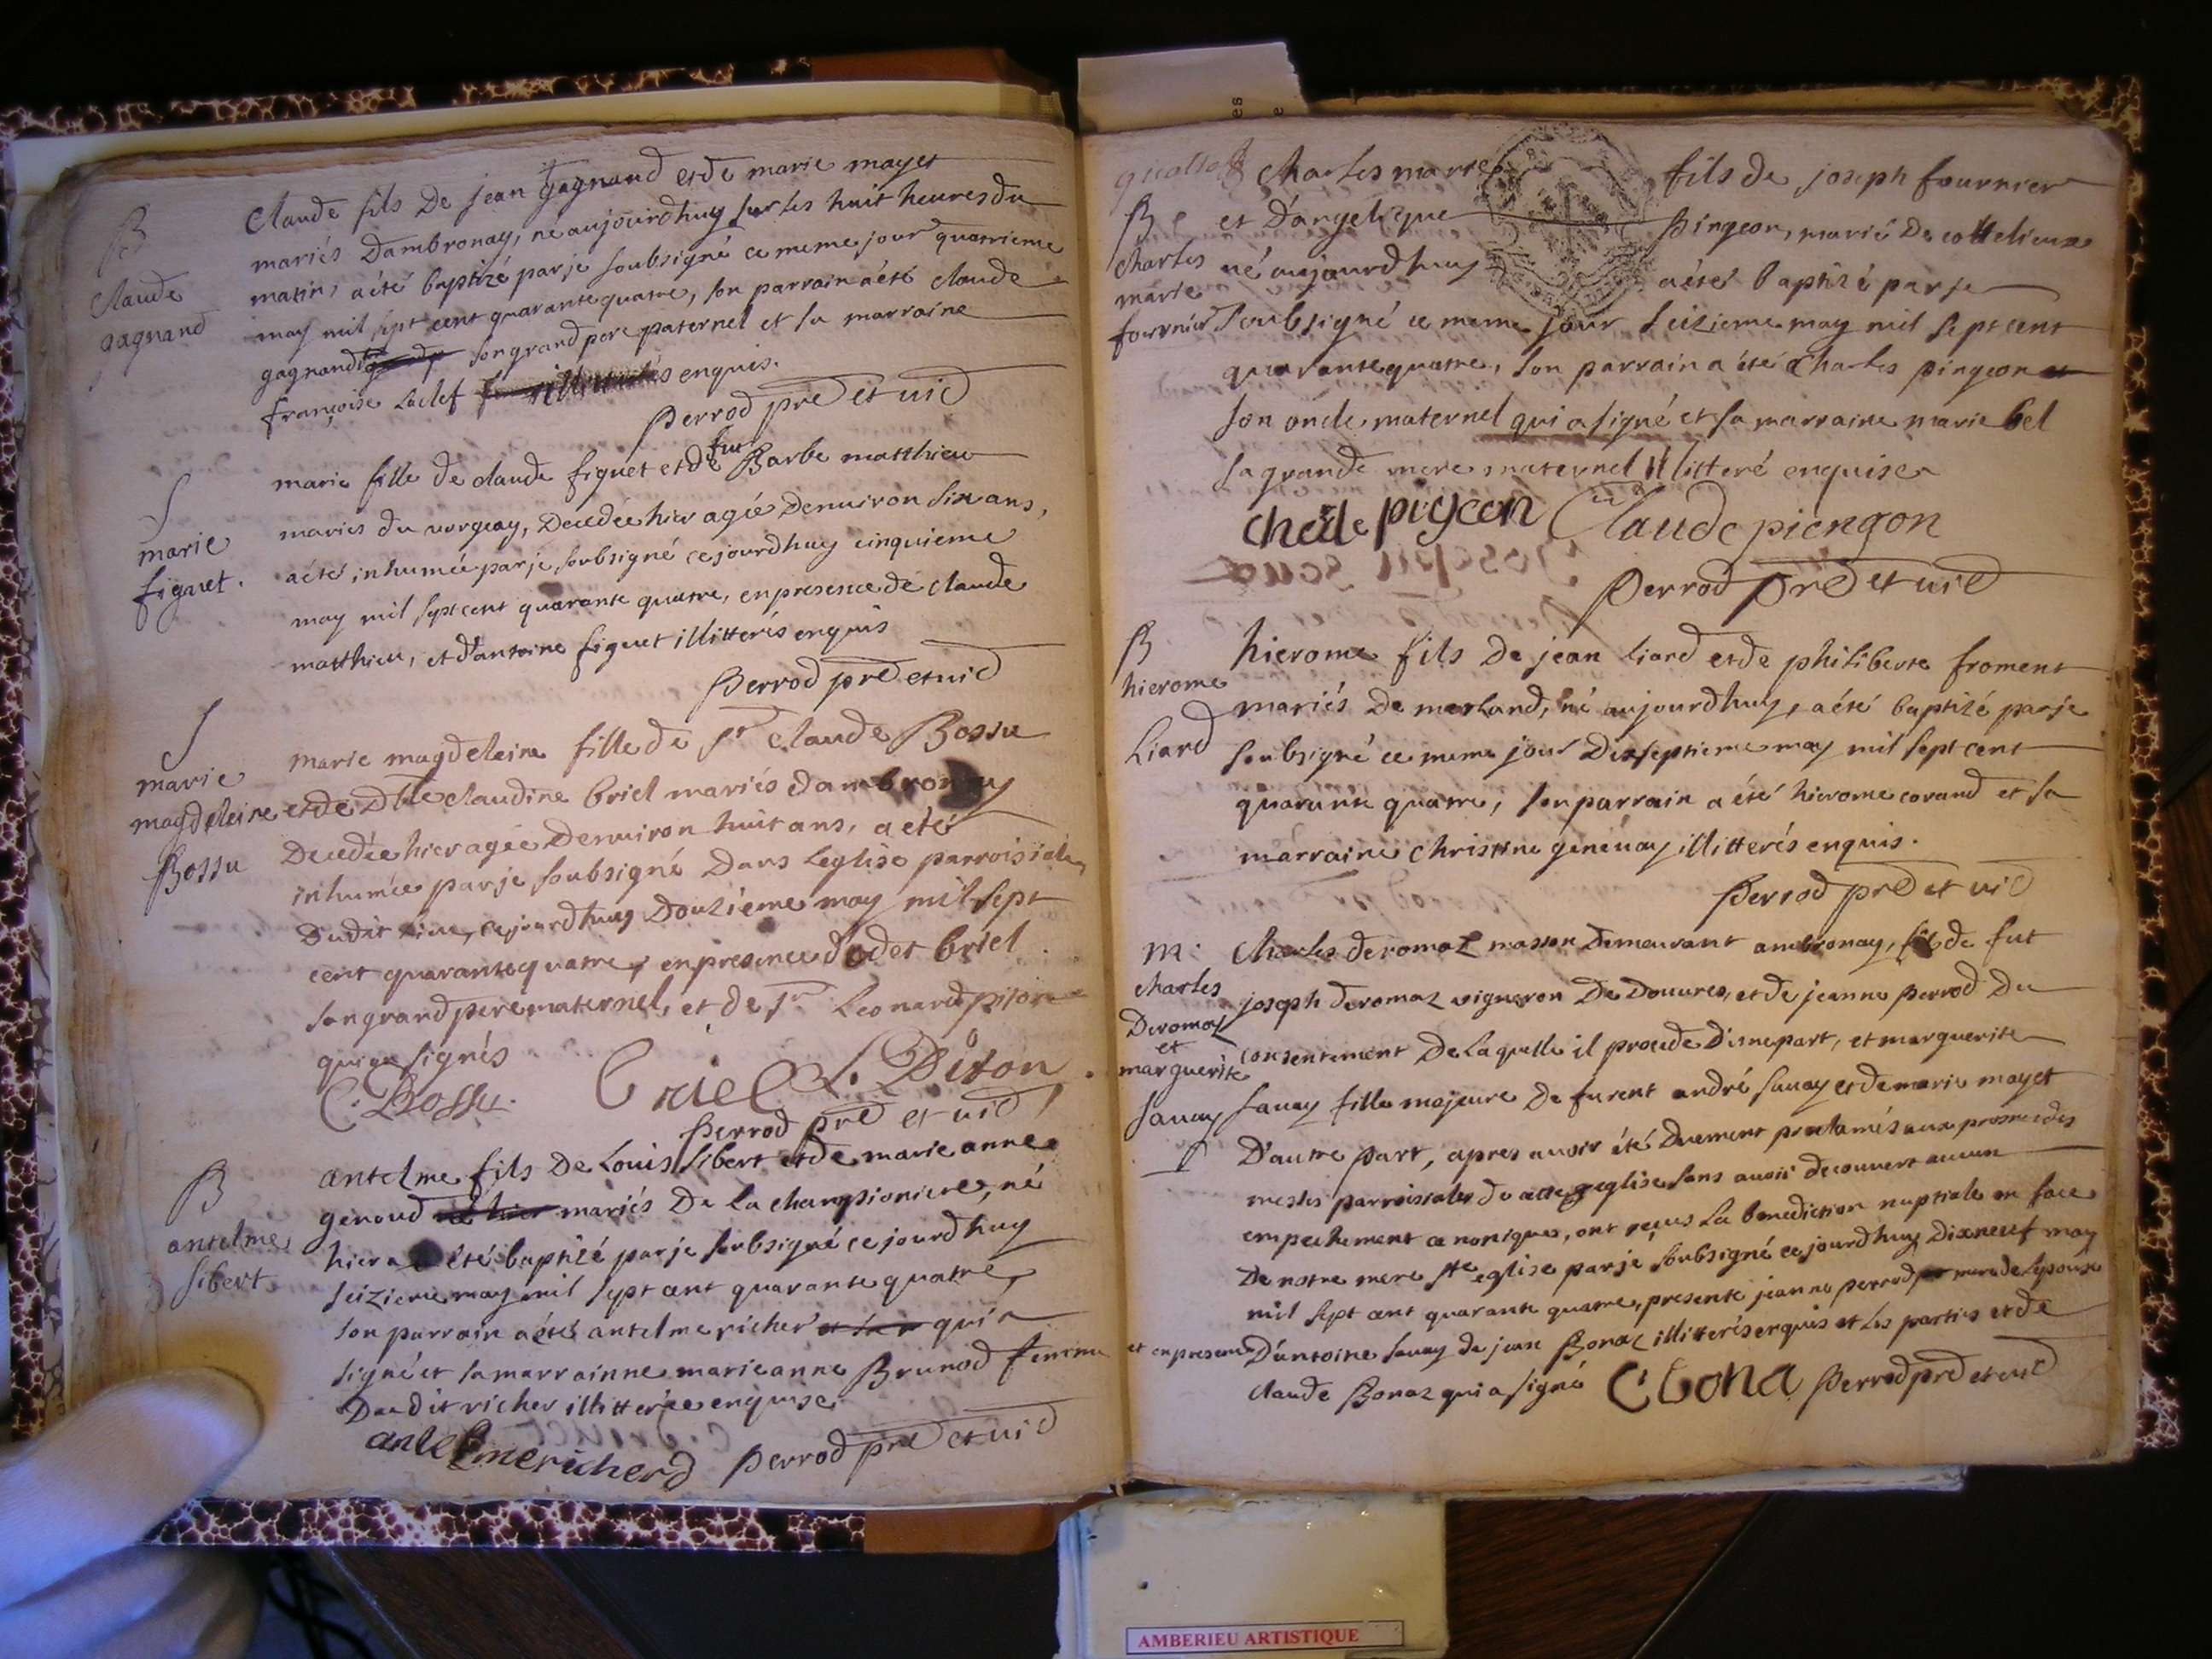 B
Claude
gagnand
Claude fils De jean gagnand et de marie mayet
mariés Dambronay, né aujourdhuy sur les huit heures du
matin, a été baptizé par je soubsigné ce meme jour quatrieme
may mil sept cent quarante quatre, son parrain a été claude
gagnand son grand pere paternel et sa marraine
françoise Laclef illitterés enquis.
Perrod pre et vic
S
marie
figuet.
marie fille de claude figuet et de fut Barbe matthieu
mariés du vorgeay, Decedée hier agée Denviron six ans,
a été inhumée par je soubsigné ce jourdhuy cinquieme
may mil sept cent quarante quatre, en presence de claude
matthieu, et d'antoine figuet illitterés enquis
Perrod pre et vic
S
marie
magdeleine
Bossu
marie magdeleine fille de Sr Claude Bossu
et de Dlle claudine briel mariés dambronay
Decedée hier agée Denviron huit ans, a été
inhumée par je soubsigné Dans Leglise parroissiale
Dudit lieu, ce jourdhuy Douzieme may mil sept
cent quarante quatre, en presence dodet briel
son grand pere maternel, et de Sr Leonard piton
qui on signés
C. Bossu. Briel L. Piton
Perrod pre et vic
B
antelme
sibert
antelme fils De Louis sibert et de marie anne
genoud né hier mariés De la championiere, né
hier a été baptizé par je soubsigné ce jourdhuy
seizieme may mil sept cent quarante quatre,
son parrain a été antelme richer et sa qui a
signé et sa marrainne marie anne Brunod femme
Dudit richer illitterée enquise
antelmericherd Perrod pre et vic
B
Charles
marie
fournier
Charles marie fils de joseph fournier
et D'angelique Pingeon, marié De cottelieux
né aujourdhuy a été baptizé par je
soubsigné ce meme jour seizieme may mil sept cent
quarante quatre, son parrain a été Charles pingeon et
son oncle maternel qui a signé et sa marraine marie bel
sa grande mere maternel illitteré enquise
pigeon Claude piengon
Perrod pre et vic
B
hierome
Liard
hierome fils De jean liard et de philiberte froment
mariés De merland, né aujourdhuy, a été baptizé par je
soubsigné ce meme jour Dixseptieme may mil sept cent
quarante quatre, son parrain a été hierome corand et sa
marraine christine genevay illitterés enquis.
Perrod pre et vic
M:
Charles
Deromaz
et
marguerite
savay
Charles deromaz masson Demeurant ambronay, fils de fut
joseph deromaz vigneron De Douvres, et de jeanne perrod Du
consentement De laquelle il procede D'une part, et marguerite
savay fille majeure De furent andré savay et de marie mayet
D'autre part, apres avoir été Duement proclamés aux prosnes des
messes parroissiales de cette eglise sans avoir decouvert aucun
empechement canonique, ont reçus La benediction nuptiale en face
De notre mere ste eglise par je soubsigné ce jourdhuy Dixneuf may
mil sept cent quarante quatre, presente jeanne perrod mere de lepoux
et en presence D'antoine savay de jean Bonaz illitterés enquis et les parties et de
claude Bonaz qui a signé C bona Perrod pre et vic
AMBERIEU ARTISTIQUE